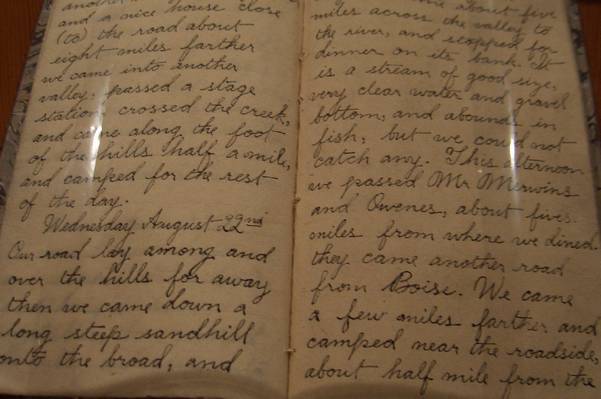 another
and a nice house close
(to) the road about
eight miles farther
we came into another
valley, passed a stage
station, crossed the creek,
and came along the foot
of the hills half a mile,
and camped for the rest
of the day.
Wednesday August 22nd
Our road lay among and
over the hills for away
then we came down a
long steep sandhill
onto the broad, and
about five
miles across the valley to
the river, and stopped for
dinner on its bank. It
is a stream of good size,
very clear water and gravel
bottom, and abounds in
fish; but we could not
catch any. This afternoon
we passed Mr Merwins
and Owenes, about fives
miles from where we dined.
they came another road
from Boise. We came
a few miles farther and
camped near the roadside,
about half mile from the